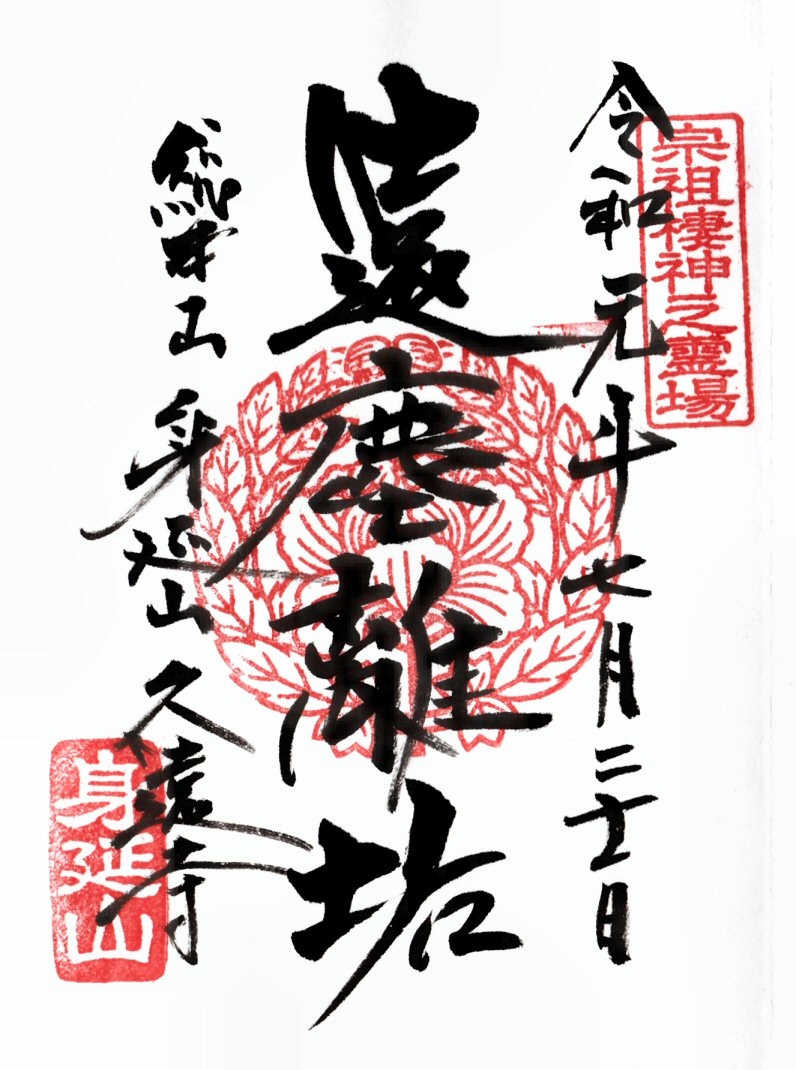 宗祖棲神之靈場
令和元年七月二十一日
遠塵離垢
總本山 身延山 久遠寺
身延山